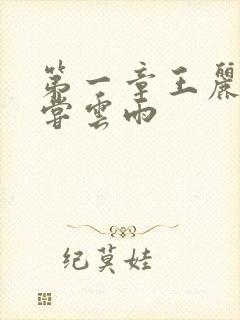 第一章王麗
嘗雲雨
纪莫娃